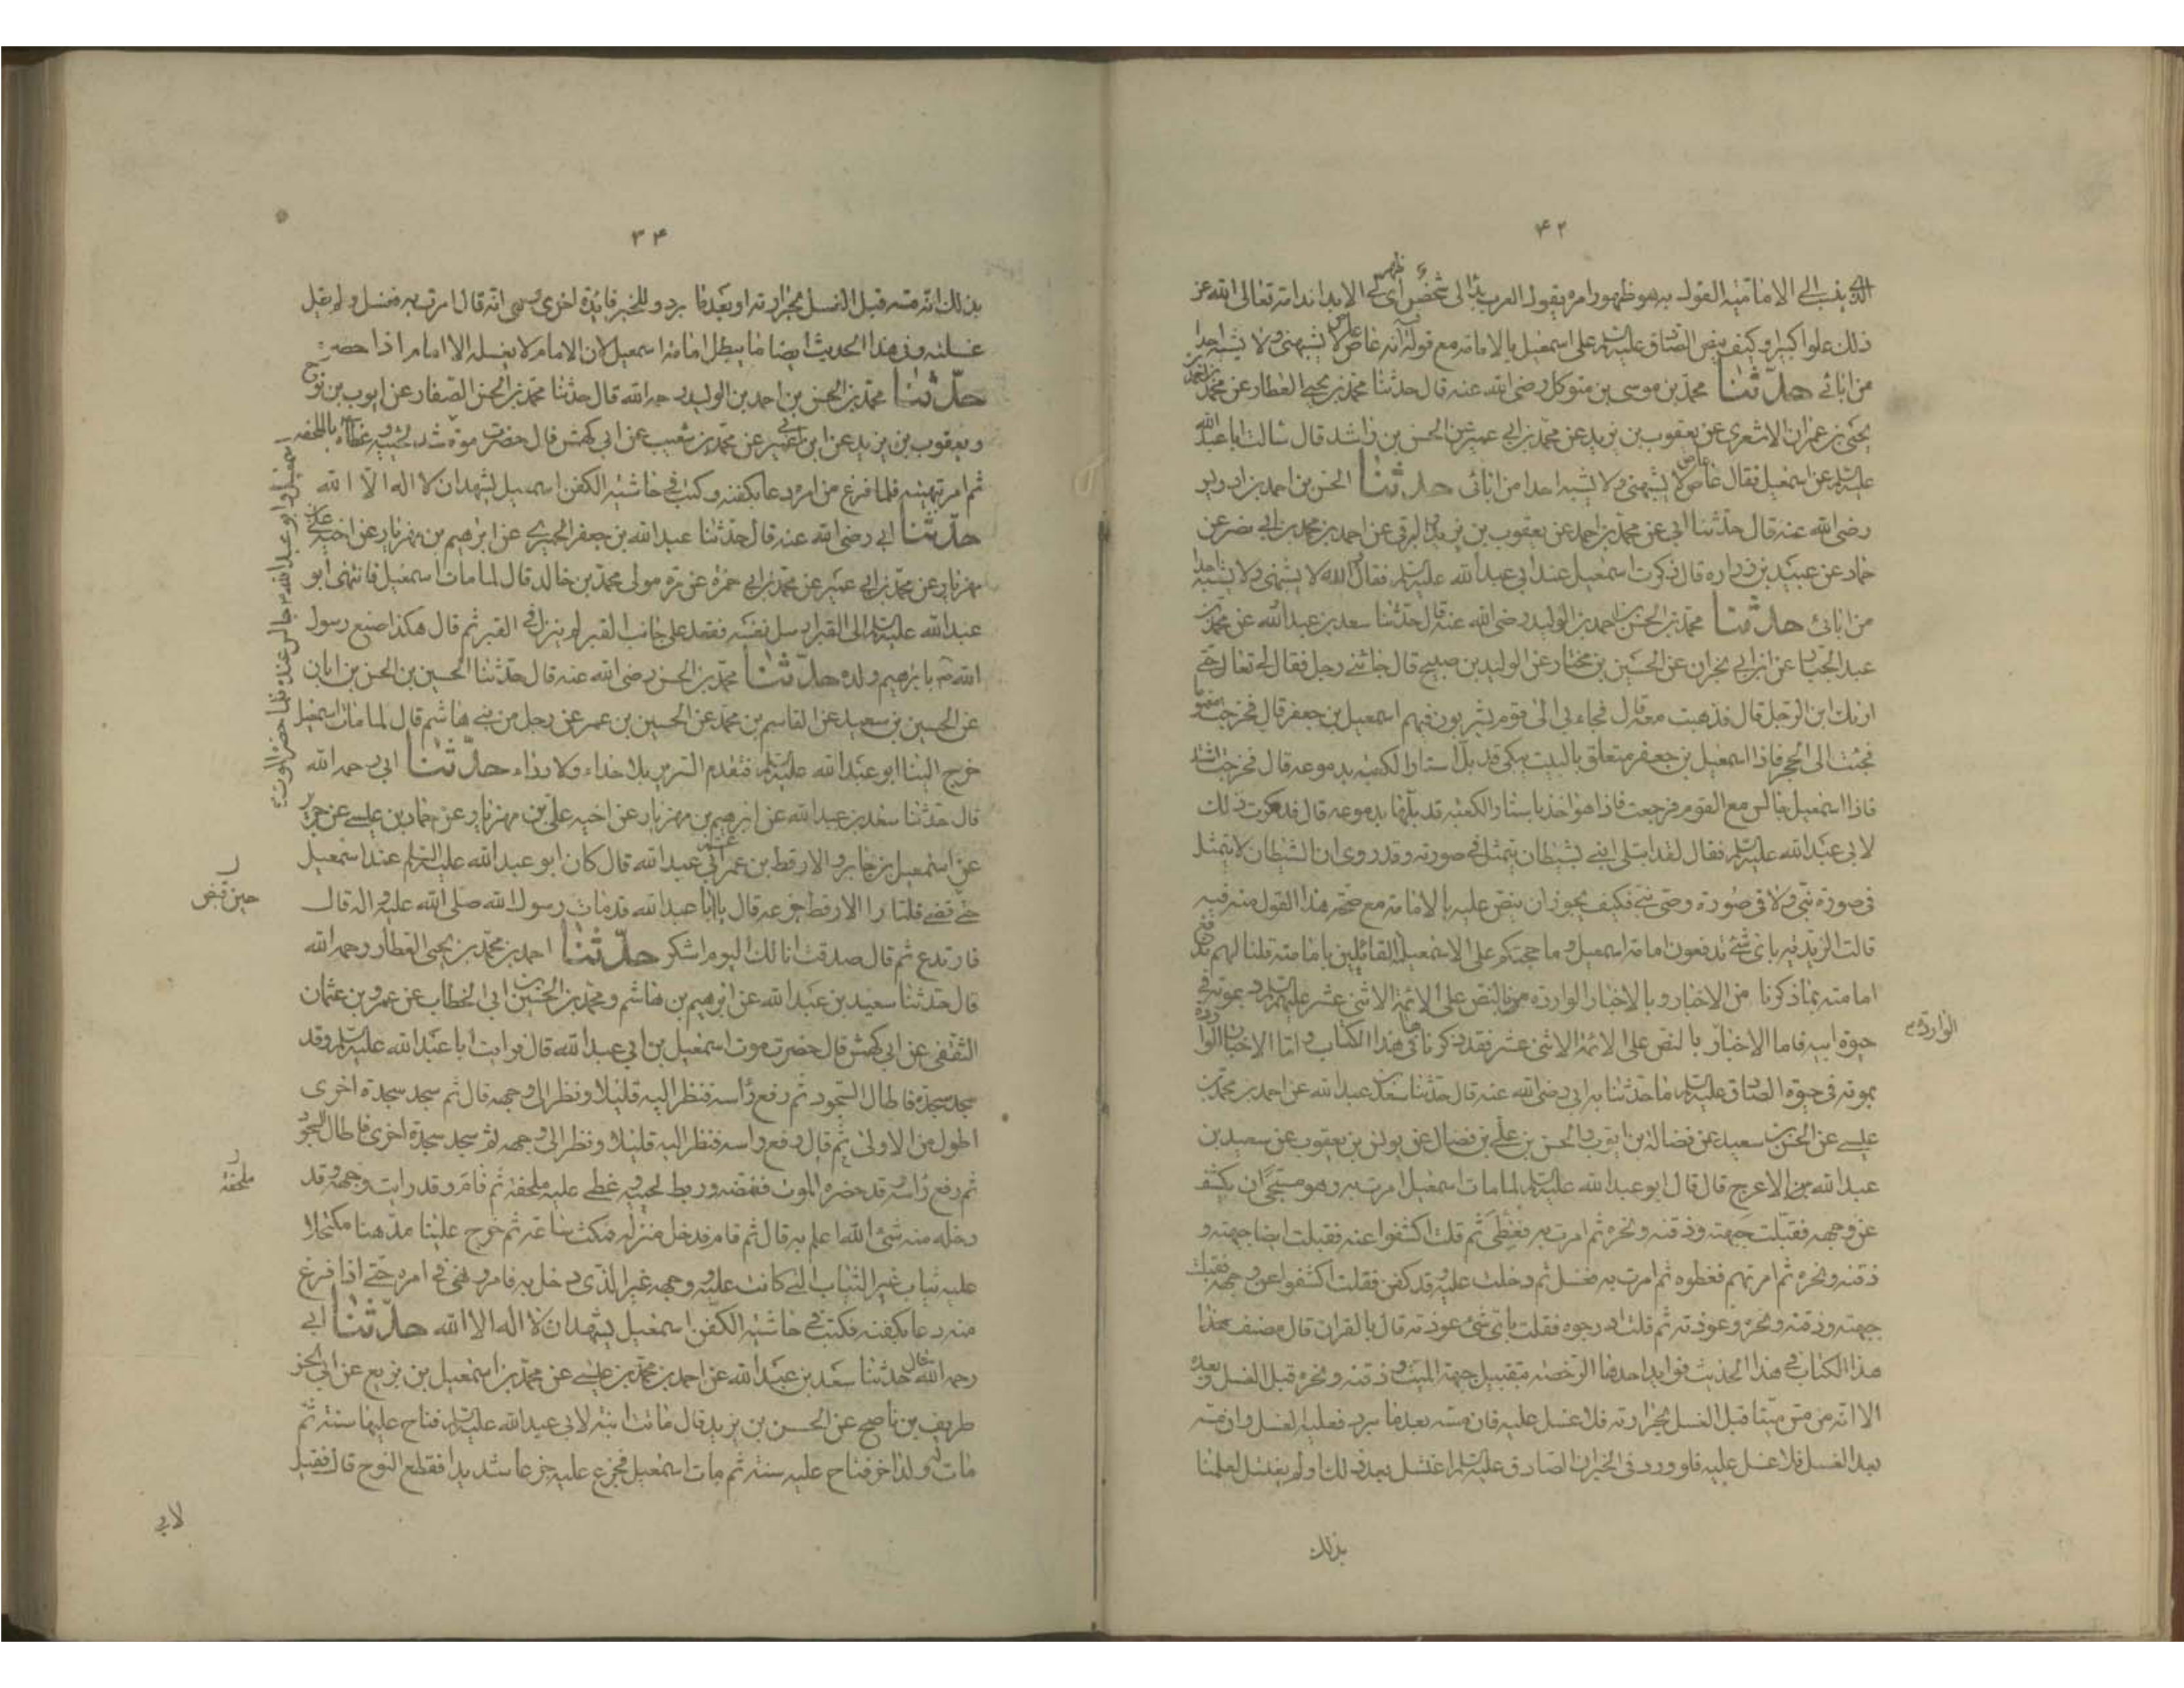 ۴۲
الذي ينسب الى الامامية القول به هو ظهور امره يقول العرب بدا لى شخص اى ظهر لى لا بدا ندامة تعالى الله عن
ذلك علوا كبيرا وكيف ينص الصادق عليه السلام على اسمعيل بالامامة مع قوله فيه انه عاص عاص لا يشبهنى ولا يشبه احدا
من ابائى حدثنا محمد بن موسى بن متوكل رضى الله عنه قال حدثنا محمد بن يحيى العطار عن محمد بن احمد بن
يحيى بن عمران الاشعرى عن يعقوب بن يزيد عن محمد بن ابى عمير عن الحسن بن راشد قال سالت ابا عبد الله
عليه السلام عن اسمعيل فقال عاص عاص لا يشبهنى ولا يشبه احدا من ابائى حدثنا الحسن بن احمد بن ادريس
رضى الله عنه قال حدثنا ابى عن محمد بن احمد عن يعقوب بن يزيد والبرقى عن احمد بن محمد بن ابى نصر عن
حماد عن عبيد بن زراره قال ذكرت اسمعيل عند ابى عبد الله عليه السلام فقال والله لا يشبهنى ولا يشبه احدا
من ابائى حدثنا محمد بن الحسن بن احمد بن الوليد رضى الله عنه قال حدثنا سعد بن عبد الله عن محمد بن
عبد الجبار عن ابن ابى نجران عن الحسين بن مختار عن الوليد بن صبيح قال جائنى رجل فقال لى تعال حتى
اريك ابن الرجل قال فذهبت معه قال فجاء بى الى قوم يشربون فيهم اسمعيل بن جعفر قال فخرجت مغموما
فجئت الى الحجر فاذا اسمعيل بن جعفر متعلق بالبيت يبكى قد بل استار الكعبه بدموعه قال فخرجت اشتد
فاذا اسمعيل جالس مع القوم فرجعت فاذا هو اخذ باستار الكعبه قد بلها بدموعه قال فذكرت ذلك
لابى عبد الله عليه السلام فقال لقد ابتلى ابنى بشيطان يتمثل فى صورته وقد روى ان الشيطان لا يتمثل
فى صورة نبى ولا فى صورة وصى نبى فكيف يجوز ان ينص عليه بالامامة مع صحة هذا القول منه فيه
قالت الزيديه باى شئ تدفعون امامة اسمعيل وما حجتكم على الاسمعيلية القائلين بامامته قلنا لهم ندفع
امامته بما ذكرنا من الاخبار وبالاخبار الواردة بالنص على الائمة الاثنى عشر عليهم السلام وبموته فى
حيوة ابيه فاما الاخبار بالنص على الائمة الاثنى عشر فقد ذكرناها فى هذا الكتاب واما الاخبار الواردة
الواردة
بموته فى حيوة الصادق عليه السلام ما حدثنا به ابى رضى الله عنه قال حدثنا سعد بن عبد الله عن احمد بن محمد بن
عيسى عن الحسن بن سعيد عن فضالة بن ايوب والحسن بن على بن فضال عن يونس بن يعقوب عن سعيد بن
عبد الله بن الاعرج قال قال ابو عبد الله عليه السلام لما مات اسمعيل امرت به وهو مسجى ان يكشف
عن وجهه فقبلت جبهته وذقنه ونحره ثم امرت به فغطى ثم قلت اكشفوا عنه فقبلت ايضا جبهته و
ذقنه ونحره ثم امرتهم فغطوه ثم امرت به فغسل ثم دخلت عليه وقد كفن فقلت اكشفوا عن وجهه فقبلت
جبهته وذقنه ونحره وعوذته ثم قلت ادرجوه فقلت باى شئ عوذته قال بالقران قال مصنف هذا
هذا الكتاب فى هذا الحديث فوايد احدها الرخصة بتقبيل جبهة الميت وذقنه ونحره قبل الغسل وبعده
الا انه من مس ميتا قبل الغسل بحرارته فلا غسل عليه فان مسه بعد ما يبرد فعليه الغسل وان مسه
بعد الغسل فلا غسل عليه فلو ورد فى الخبر ان الصادق عليه السلام اغتسل بعد ذلك او لم يغتسل لعلمنا
بذلك
۳۴
بذلك انه مسه قبل الغسل بحرارته او بعد ما برد وللخبر فايدة اخرى وهى انه قال امرت به فغسل ولم يقل
غسلته وفى هذا الحديث ايضا ما يبطل امامة اسمعيل لان الامام لا يغسله الا امام اذا حضره
حدثنا محمد بن الحسن بن احمد بن الوليد رحمه الله قال حدثنا محمد بن الحسن الصفار عن ايوب بن نوح
ويعقوب بن يزيد عن ابن ابى عمير عن محمد بن شعيب عن ابى كهمش قال حضرت موت اسمعيل وابو عبد الله جالس عنده فلما حضره الموت شد لحييه وغطاه بالملحفه
ثم امر بتهيئته فلما فرغ من امره دعا بكفنه وكتب فى حاشية الكفن اسمعيل يشهد ان لا اله الا الله
حدثنا ابى رضى الله عنه قال حدثنا عبد الله بن جعفر الحميرى عن ابرهيم بن مهزيار عن اخيه على بن
مهزيار عن محمد بن ابى عمير عن محمد بن ابى حمزة عن مرة مولى محمد بن خالد قال لما مات اسمعيل فانتهى ابو
عبد الله عليه السلام الى القبر ارسل نفسه فقعد على جانب القبر لم ينزل فى القبر ثم قال هكذا صنع رسول
الله ص بابرهيم ولده حدثنا محمد بن الحسن رضى الله عنه قال حدثنا الحسين بن الحسن بن ابان
عن الحسين بن سعيد عن القاسم بن محمد عن الحسين بن عمر عن رجل من بنى هاشم قال لما مات اسمعيل
خرج الينا ابو عبد الله عليه السلام فتقدم السرير بلا حذاء ولا رداء حدثنا ابى رحمه الله
قال حدثنا سعد بن عبد الله عن ابرهيم بن مهزيار عن اخيه على بن مهزيار عن حماد بن عيسى عن حريز
عن اسمعيل بن جابر والارقط بن عمر عن ابى عبد الله قال كان ابو عبد الله عليه السلام عند اسمعيل
حين قبض
حتى قضى فلما را الارقط جزعه قال يا ابا عبد الله قد مات رسول الله صلى الله عليه واله قال
فارتدع ثم قال صدقت انا لك اليوم اشكر حدثنا احمد بن محمد بن يحيى العطار رحمه الله
قال حدثنا سعيد بن عبد الله عن ابرهيم بن هاشم ومحمد بن الحسين بن ابى الخطاب عن عمرو بن عثمان
الثقفى عن ابى كهمش قال حضرت موت اسمعيل بن ابى عبد الله قال فرايت ابا عبد الله عليه السلام وقد
سجد سجدة فاطال السجود ثم رفع رأسه فنظر اليه قليلا ونظر الى وجهه قال ثم سجد سجدة اخرى
اطول من الاولى ثم قال رفع راسه فنظر اليه قليلا ونظر الى وجهه ثم سجد سجدة اخرى فاطال السجود
ثم رفع رأسه وقد حضره الموت فغمضه وربط لحييه وغطى عليه ملحفة ثم قام وقد رايت وجهه وقد
ملحفة
دخله منه شئ الله اعلم به قال ثم قام فدخل منزله فمكث ساعة ثم خرج علينا مدهنا مكتحلا
عليه ثياب غير الثياب التى كانت عليه ووجهه غير الذى دخل به فامر ونهى فى امره حتى اذا فرغ
منه دعا بكفنه فكتب فى حاشية الكفن اسمعيل يشهد ان لا اله الا الله حدثنا ابى
رحمه الله قال حدثنا سعد بن عبد الله عن احمد بن محمد بن عيسى عن محمد بن اسمعيل بن بزيع عن ابى الحسن
طريف بن ناصح عن الحسن بن يزيد قال ماتت ابنة لابى عبد الله عليه السلام فناح عليها سنة ثم
مات له ولد اخر فناح عليه سنة ثم مات اسمعيل فجزع عليه جزعا شديدا فقطع النوح قال فقيل
لابى